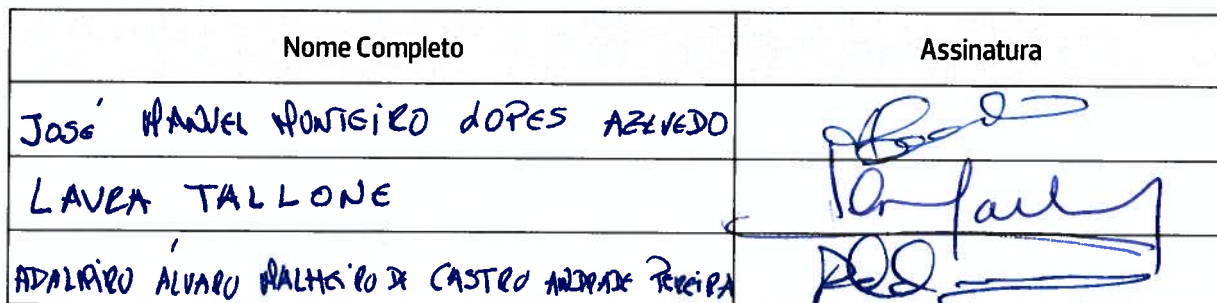 Nome Completo Assinatura
José MANUEL MONTEIRO LOPES AZEVEDO
LAURA TALLONE
ADALMIRO ÁLVARO MALHEIRO DE CASTRO ANDRADE PEREIRA